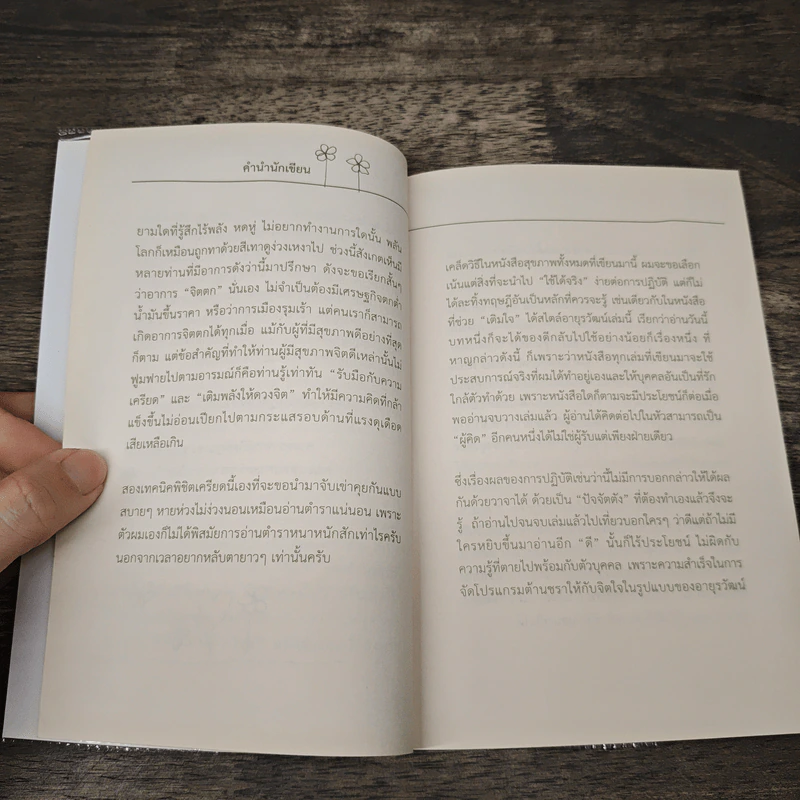 คำนำนักเขียน
ยามใดที่รู้สึกไร้พลัง หดหู่ ไม่อยากทำงานการใดนั้น พลัน
โลกก็เหมือนถูกทาด้วยสีเทาดูง่วงเหงาไป ช่วงนี้สังเกตเห็นมี
หลายท่านที่มีอาการดังว่านี้มาปรึกษา ดังจะขอเรียกสั้นๆ
ว่าอาการ “จิตตก” นั่นเอง ไม่จำเป็นต้องมีเศรษฐกิจตกต่ำ
น้ำมันขึ้นราคา หรือว่าการเมืองรุมเร้า แต่คนเราก็สามารถ
เกิดอาการจิตตกได้ทุกเมื่อ แม้กับผู้ที่มีสุขภาพดีอย่างที่สุด
ก็ตาม แต่ข้อสำคัญที่ทำให้ท่านผู้มีสุขภาพจิตดีเหล่านั้นไม่
ฟูมฟายไปตามอารมณ์ก็คือท่านรู้เท่าทัน “รับมือกับความ
เครียด” และ “เติมพลังให้ดวงจิต” ทำให้มีความคิดที่กล้า
แข็งขึ้นไม่อ่อนเปียกไปตามกระแสรอบด้านที่แรงดุเดือด
เสียเหลือเกิน
สองเทคนิคพิชิตเครียดนี้เองที่จะขอนำมาจับเข่าคุยกันแบบ
สบายๆ หายห่วงไม่ง่วงนอนเหมือนอ่านตำราแน่นอน เพราะ
ตัวผมเองก็ไม่ได้พิสมัยการอ่านตำราหนาหนักสักเท่าไรครับ
นอกจากเวลาอยากหลับตายาวๆ เท่านั้นครับ
เคล็ดวิธีในหนังสือสุขภาพทั้งหมดที่เขียนมานี้ ผมจะขอเลือก
เน้นแต่สิ่งที่จะนำไป “ใช้ได้จริง” ง่ายต่อการปฏิบัติ แต่ก็ไม่
ได้ละทิ้งทฤษฎีอันเป็นหลักที่ควรจะรู้ เช่นเดียวกับในหนังสือ
ที่ช่วย “เติมใจ” ได้สไตล์อายุรวัฒน์เล่มนี้ เรียกว่าอ่านวันนี้
บทหนึ่งก็จะได้ของดีกลับไปใช้อย่างน้อยก็เรื่องหนึ่ง ที่
หาญกล่าวดังนี้ ก็เพราะว่าหนังสือทุกเล่มที่เขียนมาจะใช้
ประสบการณ์จริงที่ผมได้ทำอยู่เองและให้บุคคลอันเป็นที่รัก
ใกล้ตัวทำด้วย เพราะหนังสือใดก็ตามจะมีประโยชน์ก็ต่อเมื่อ
พออ่านจบวางเล่มแล้ว ผู้อ่านได้คิดต่อไปในหัวสามารถเป็น
“ผู้คิด” อีกคนหนึ่งได้ไม่ใช่ผู้รับแต่เพียงฝ่ายเดียว
ซึ่งเรื่องผลของการปฏิบัติเช่นว่านี้ไม่มีการบอกกล่าวให้ได้ผล
กันด้วยวาจาได้ ด้วยเป็น “ปัจจัตตัง” ที่ต้องทำเองแล้วจึงจะ
รู้ ถ้าอ่านไปจนจบเล่มแล้วไปเที่ยวบอกใครๆ ว่าดีแต่ถ้าไม่มี
ใครหยิบขึ้นมาอ่านอีก “ดี” นั้นก็ไร้ประโยชน์ ไม่ผิดกับ
ความรู้ที่ตายไปพร้อมกับตัวบุคคล เพราะความสำเร็จในการ
จัดโปรแกรมต้านชราให้กับจิตใจในรูปแบบของอายุรวัฒน์